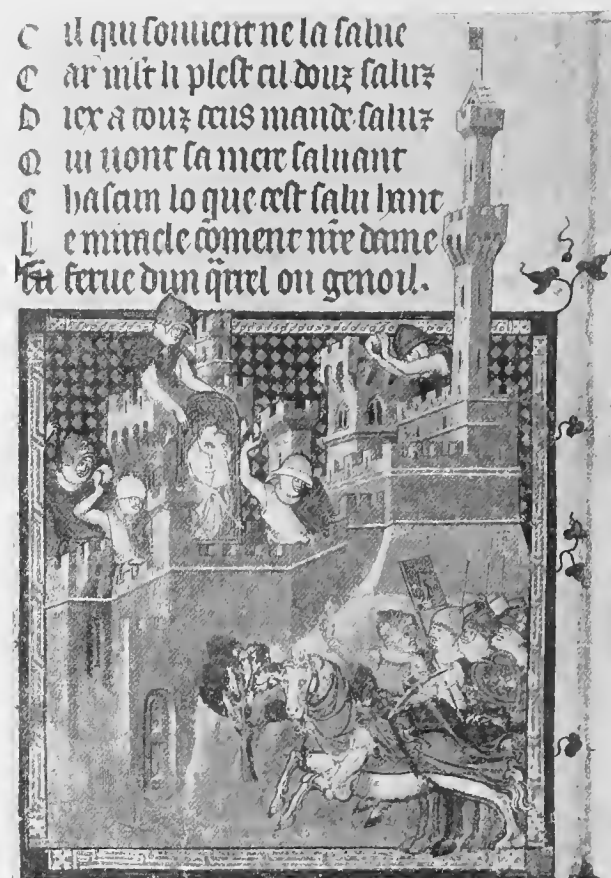 C il qui souuent ne la salue
C ar mlt li plest cil douz saluz
D iex a touz ceus mande saluz
Q ui uont sa mere saluant
C hascun lo que cest salu hant
L e miracle cōment nr̄e dame
fu ferue dun q̄rrel ou genoil.